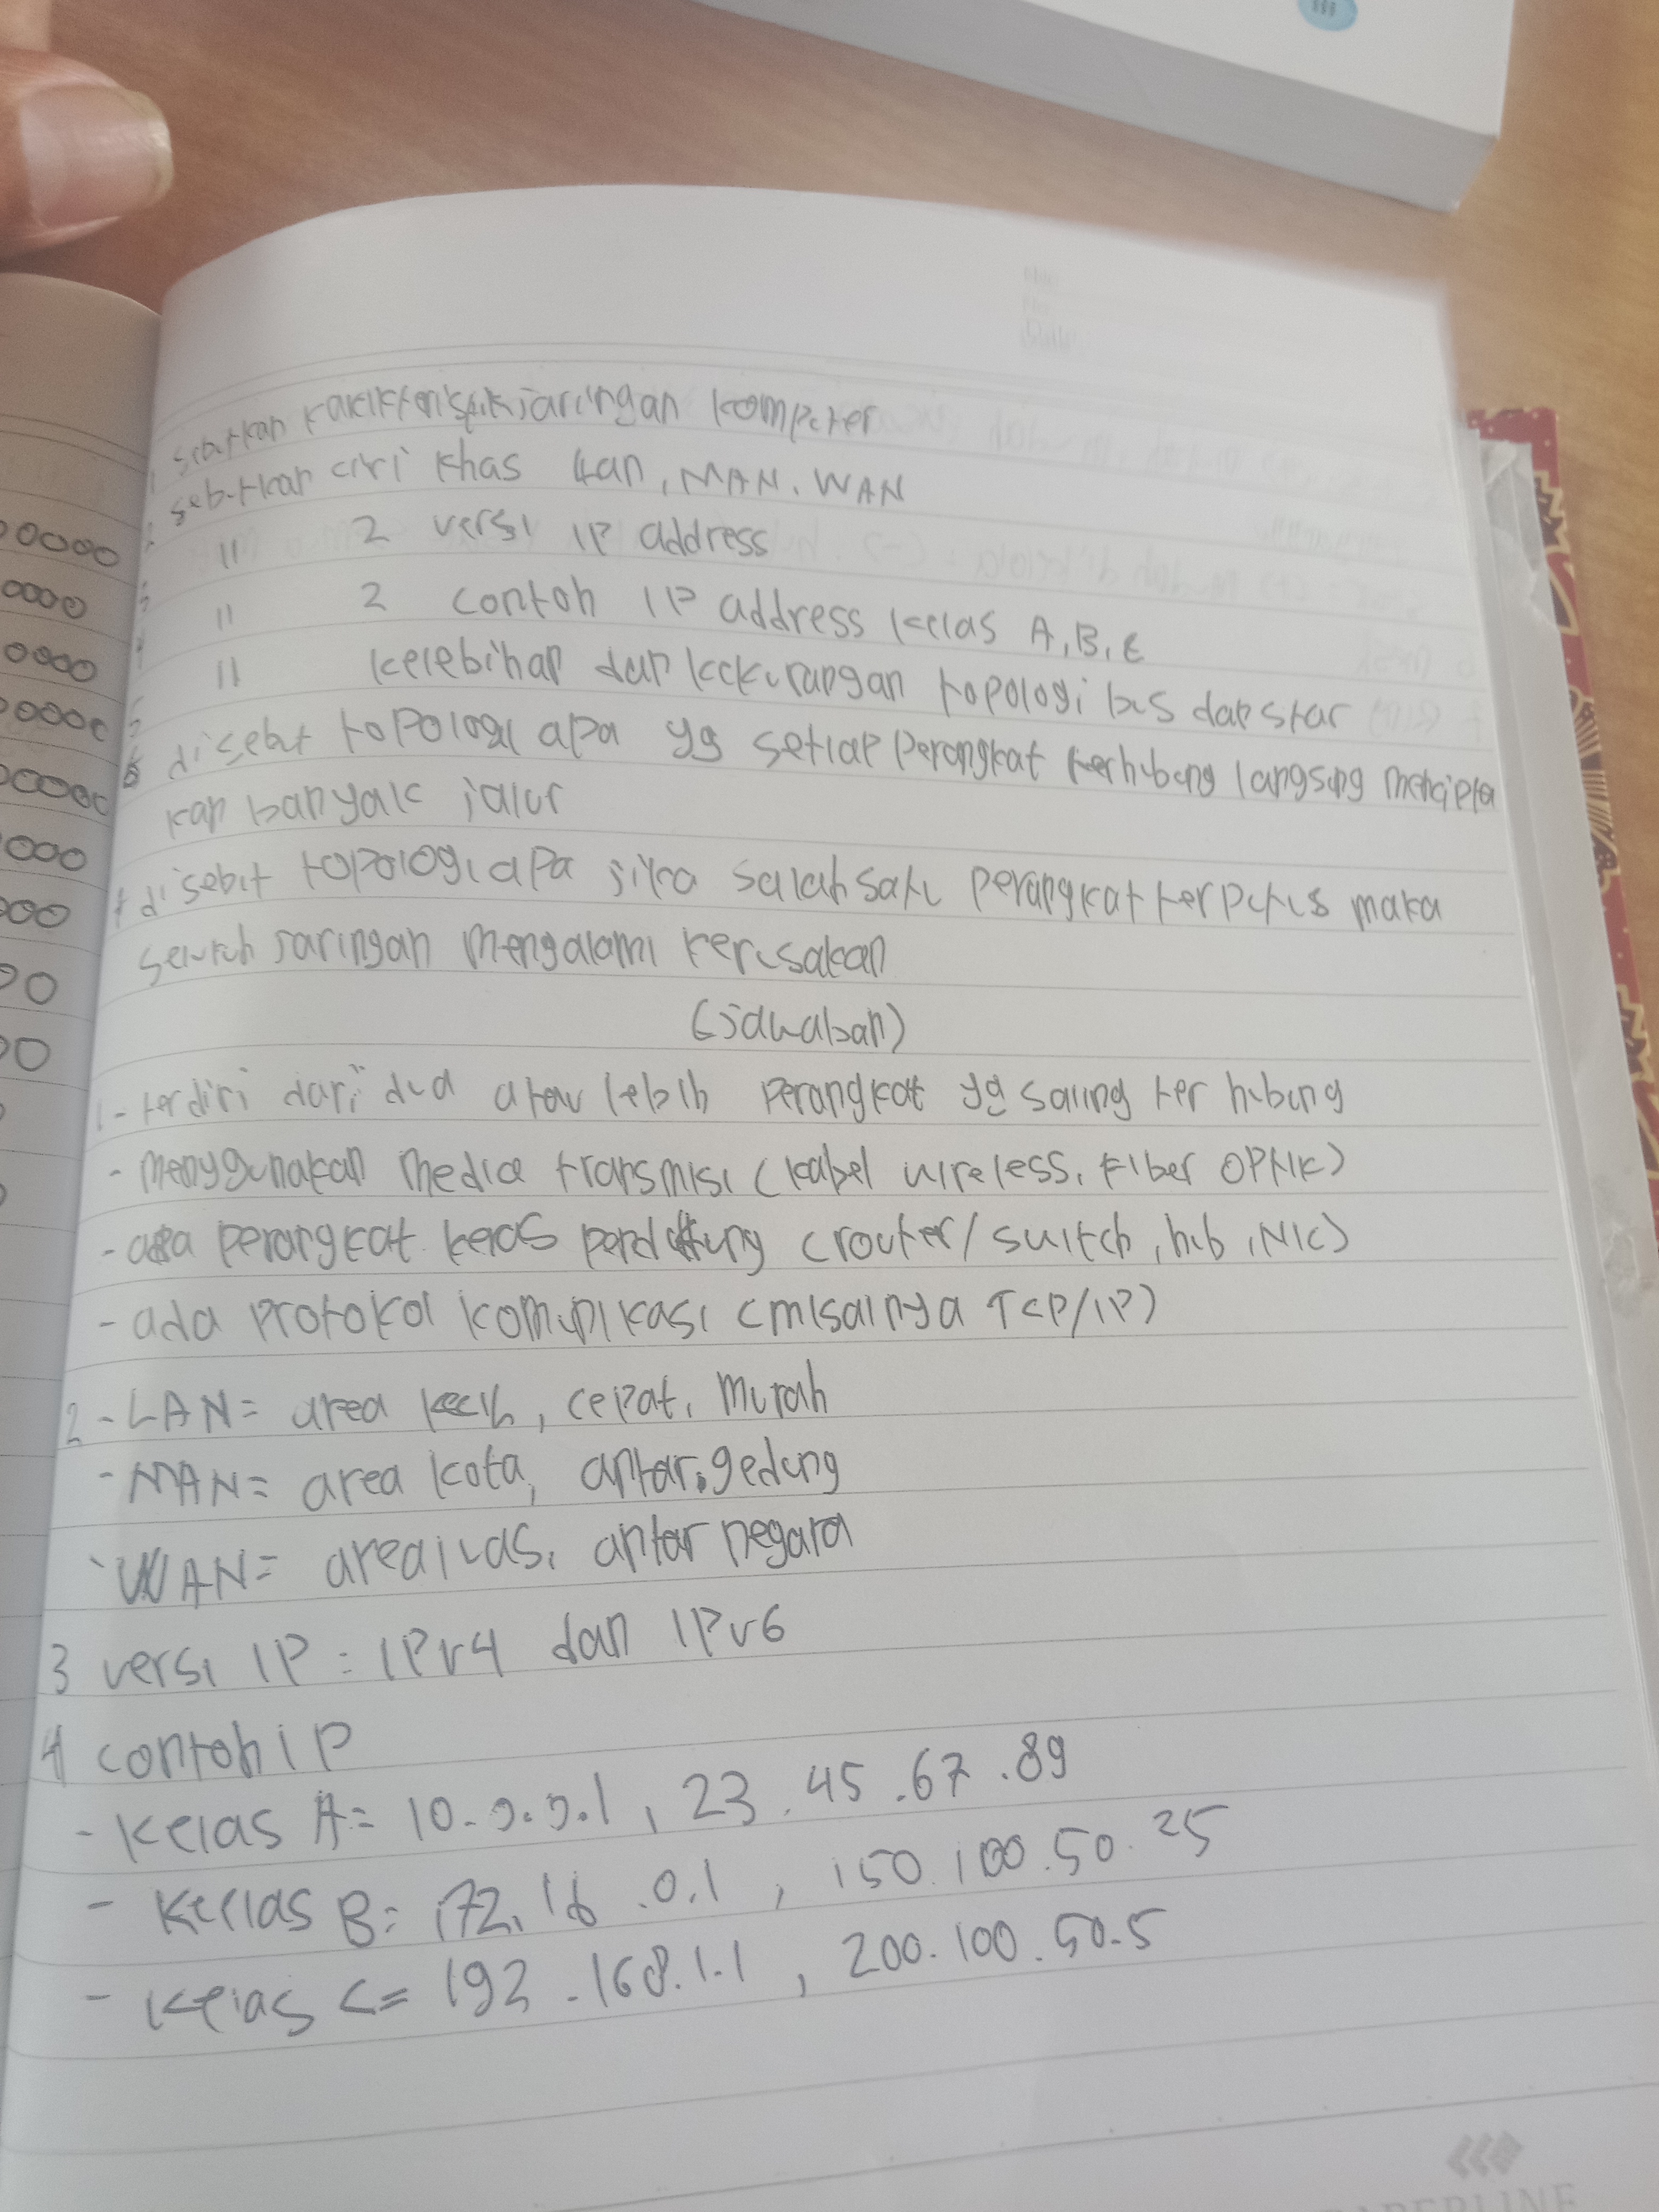 1 sebutkan karakteristik jaringan komputer
2 sebutkan ciri khas Lan, MAN, WAN
3 11 2 versi IP address
4 11 2 contoh IP address kelas A, B, C
5 11 kelebihan dan kekurangan topologi bus dan star
6 disebut topologi apa yg setiap perangkat terhubung langsung mencipta
kan banyak jalur
7 disebut topologi apa jika salah satu perangkat terputus maka
seluruh jaringan mengalami kerusakan
(jawaban)
1 - terdiri dari dua atau lebih perangkat yg saling ter hubung
- menggunakan media transmisi (kabel wireless, fiber optik)
- ada perangkat keras pendukung (router/switch, hub, NIC)
- ada protokol komunikasi (misalnya TCP/IP)
2 - LAN = area kecil, cepat, murah
- MAN = area kota, antar gedung
- WAN = area luas, antar negara
3 versi IP : IPv4 dan IPv6
4 contoh IP
- Kelas A = 10.0.0.1, 23.45.67.89
- Kellas B = 172.16.0.1, 150.100.50.25
- Kelas C = 192.168.1.1, 200.100.50.5